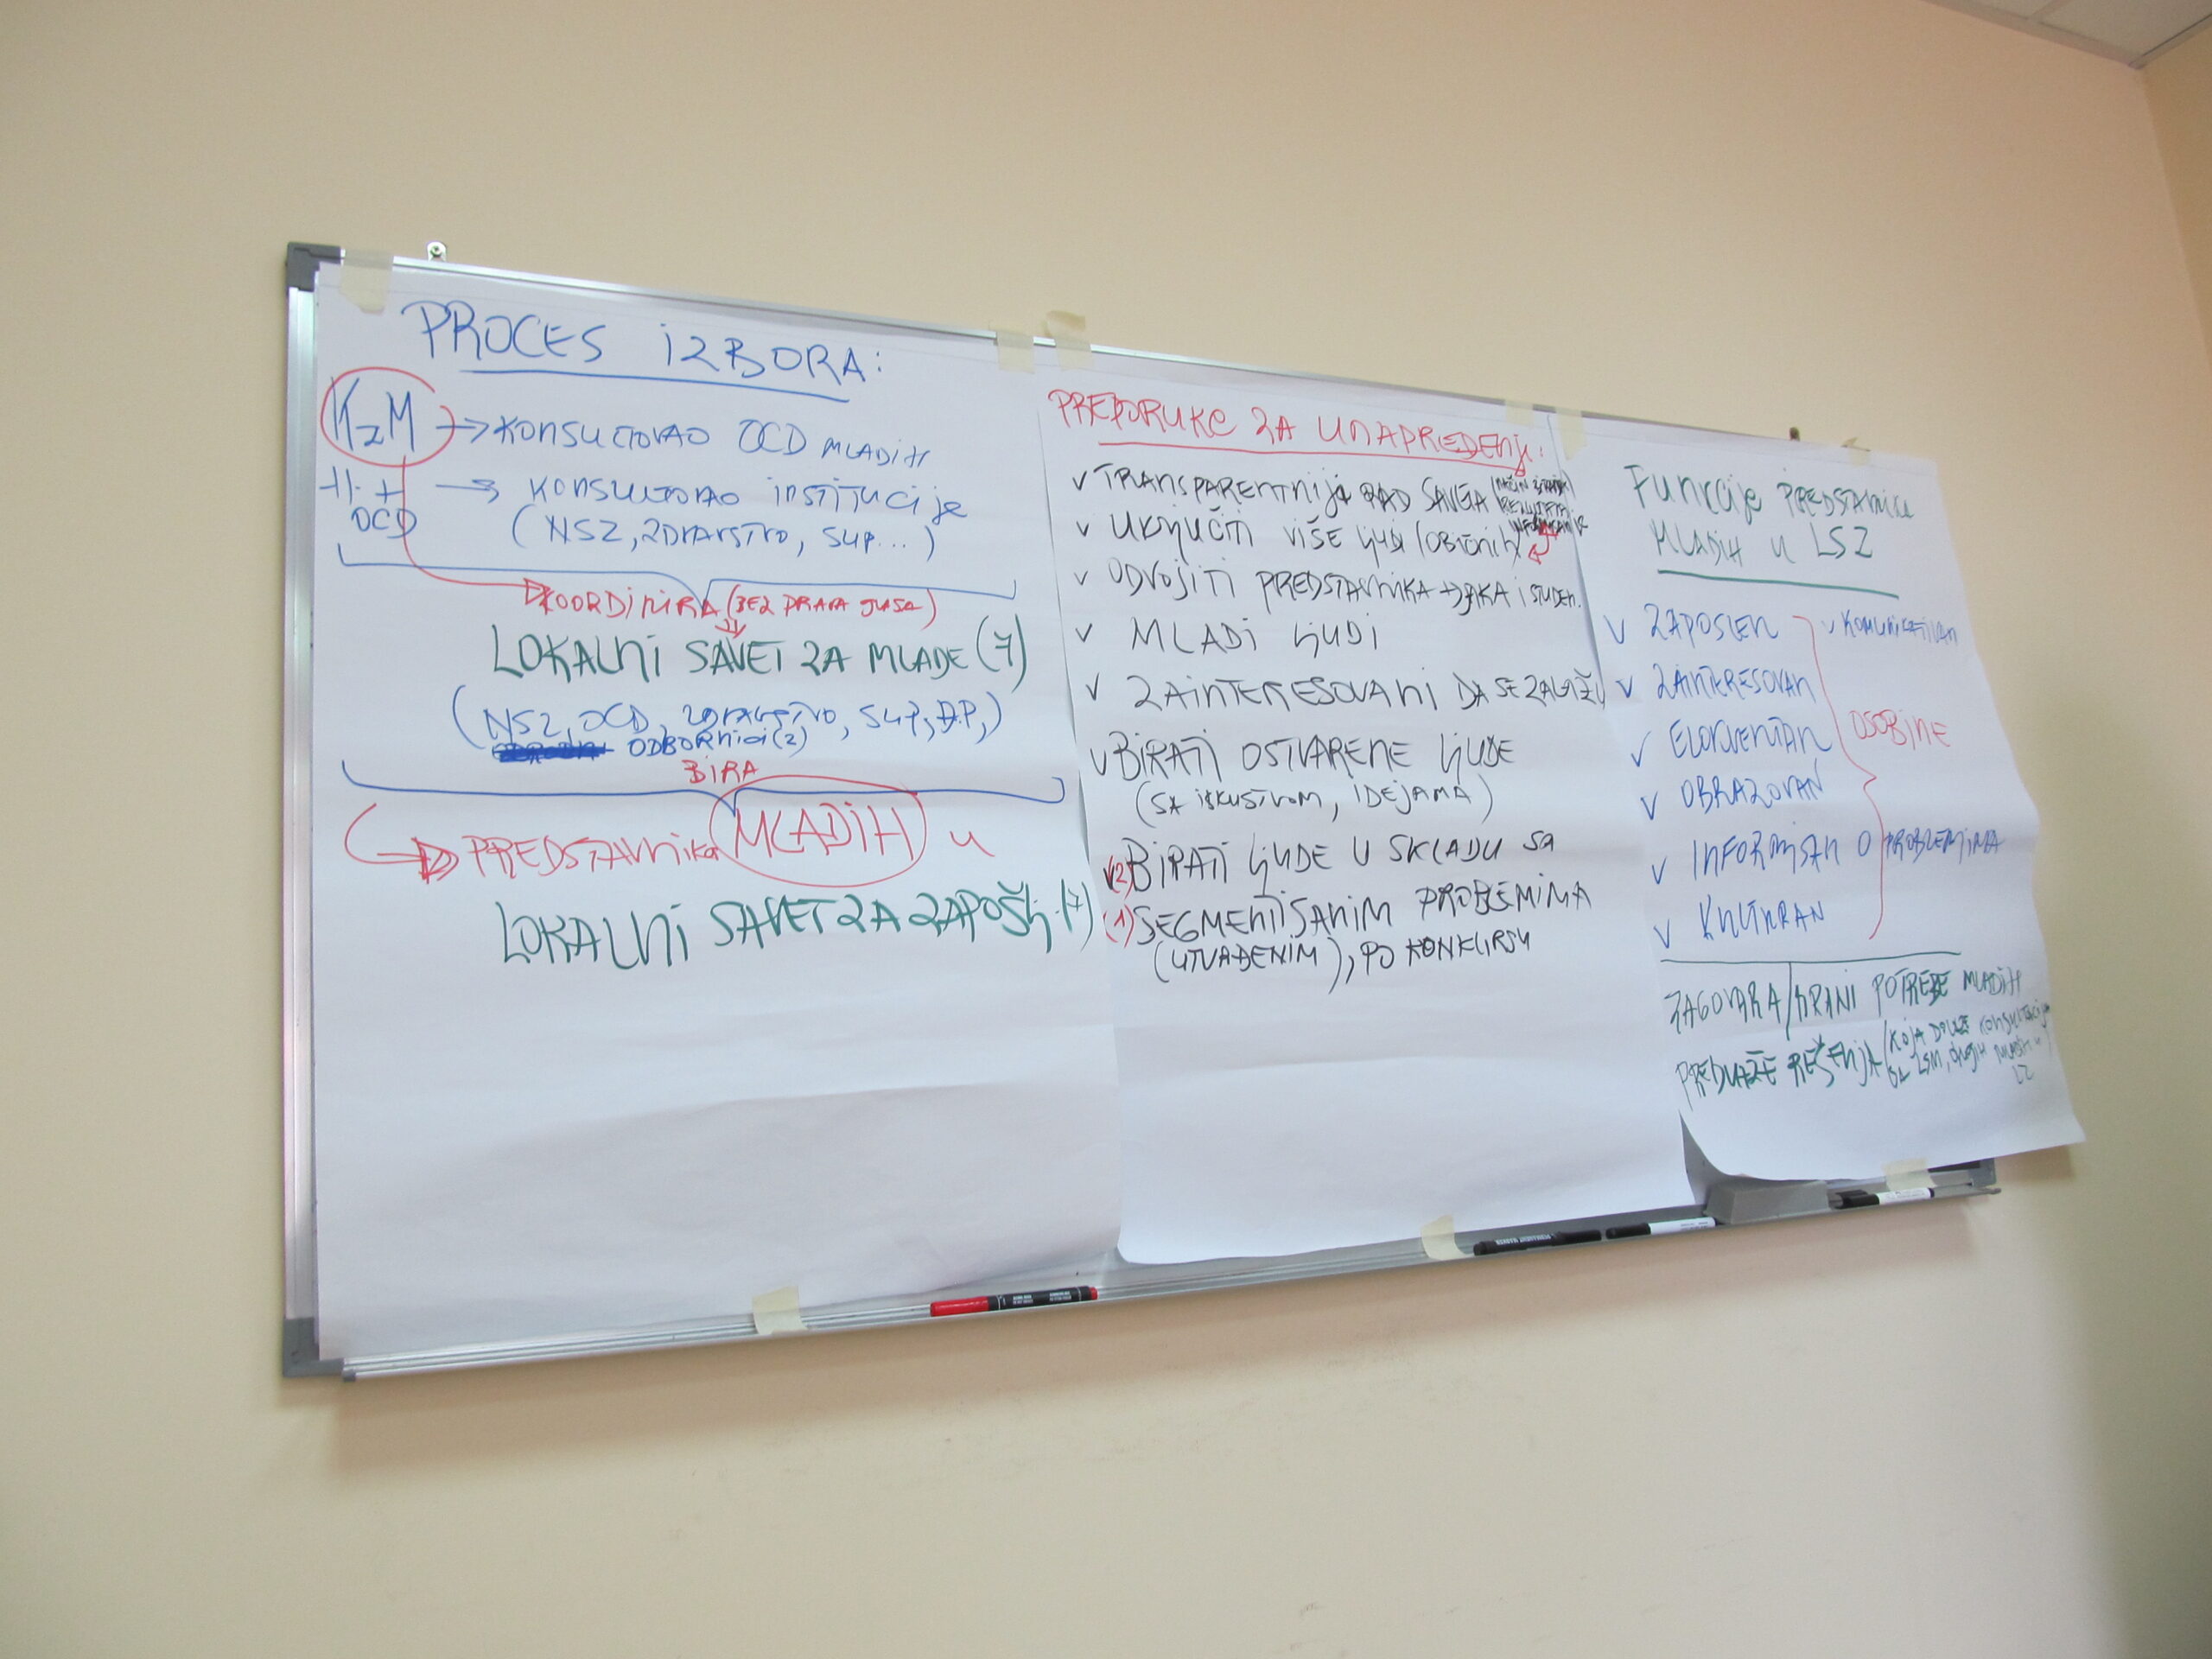 PROCES IZBORA:
KZM → KONSULTOVAO OCD MLADIH
+ OCD → KONSULTOVAO INSTITUCIJE
(NSZ, ZDRAVSTVO, SUP...)
KOORDINIRA (BEZ PRAVA GLASA)
LOKALNI SAVET ZA MLADE (7)
(NSZ, OCD, ZDRAVSTVO, SUP, Đ.P,)
ODBORNICI (2)
BIRA
→ PREDSTAVNIKA MLADIH U
LOKALNI SAVET ZA ZAPOŠLJ. (7)
PREPORUKE ZA UNAPREĐENJE:
√ TRANSPARENTNIJI RAD SAVETA
√ UKLJUČITI VIŠE LJUDI (OBIČNIH)
√ ODVOJITI PREDSTAVNIKA → ĐAKA I STUDEN.
√ MLADI LJUDI
√ ZAINTERESOVANI DA SE ZALAŽU
√ BIRATI OSTVARENE LJUDE
(SA ISKUSTVOM, IDEJAMA)
√ (2) BIRATI LJUDE U SKLADU SA
(1) SEGMENTISANIM PROBLEMIMA
(UTVRĐENIM), PO KONKURSU
Funkcije PREDSTAVNIKA
MLADIH U LSZ
√ ZAPOSLEN
√ KOMUNIKATIVAN
√ ZAINTERESOVAN
√ ELOKVENTAN
OSOBINE
√ OBRAZOVAN
√ INFORMISAN O PROBLEMIMA
√ KULTURAN
ZAGOVARA/BRANI POTREBE MLADIH
PREDLAŽE REŠENJA (KOJA DOLAZE KONSULTACIJOM
SA LSM, drugih mladih u
LZ